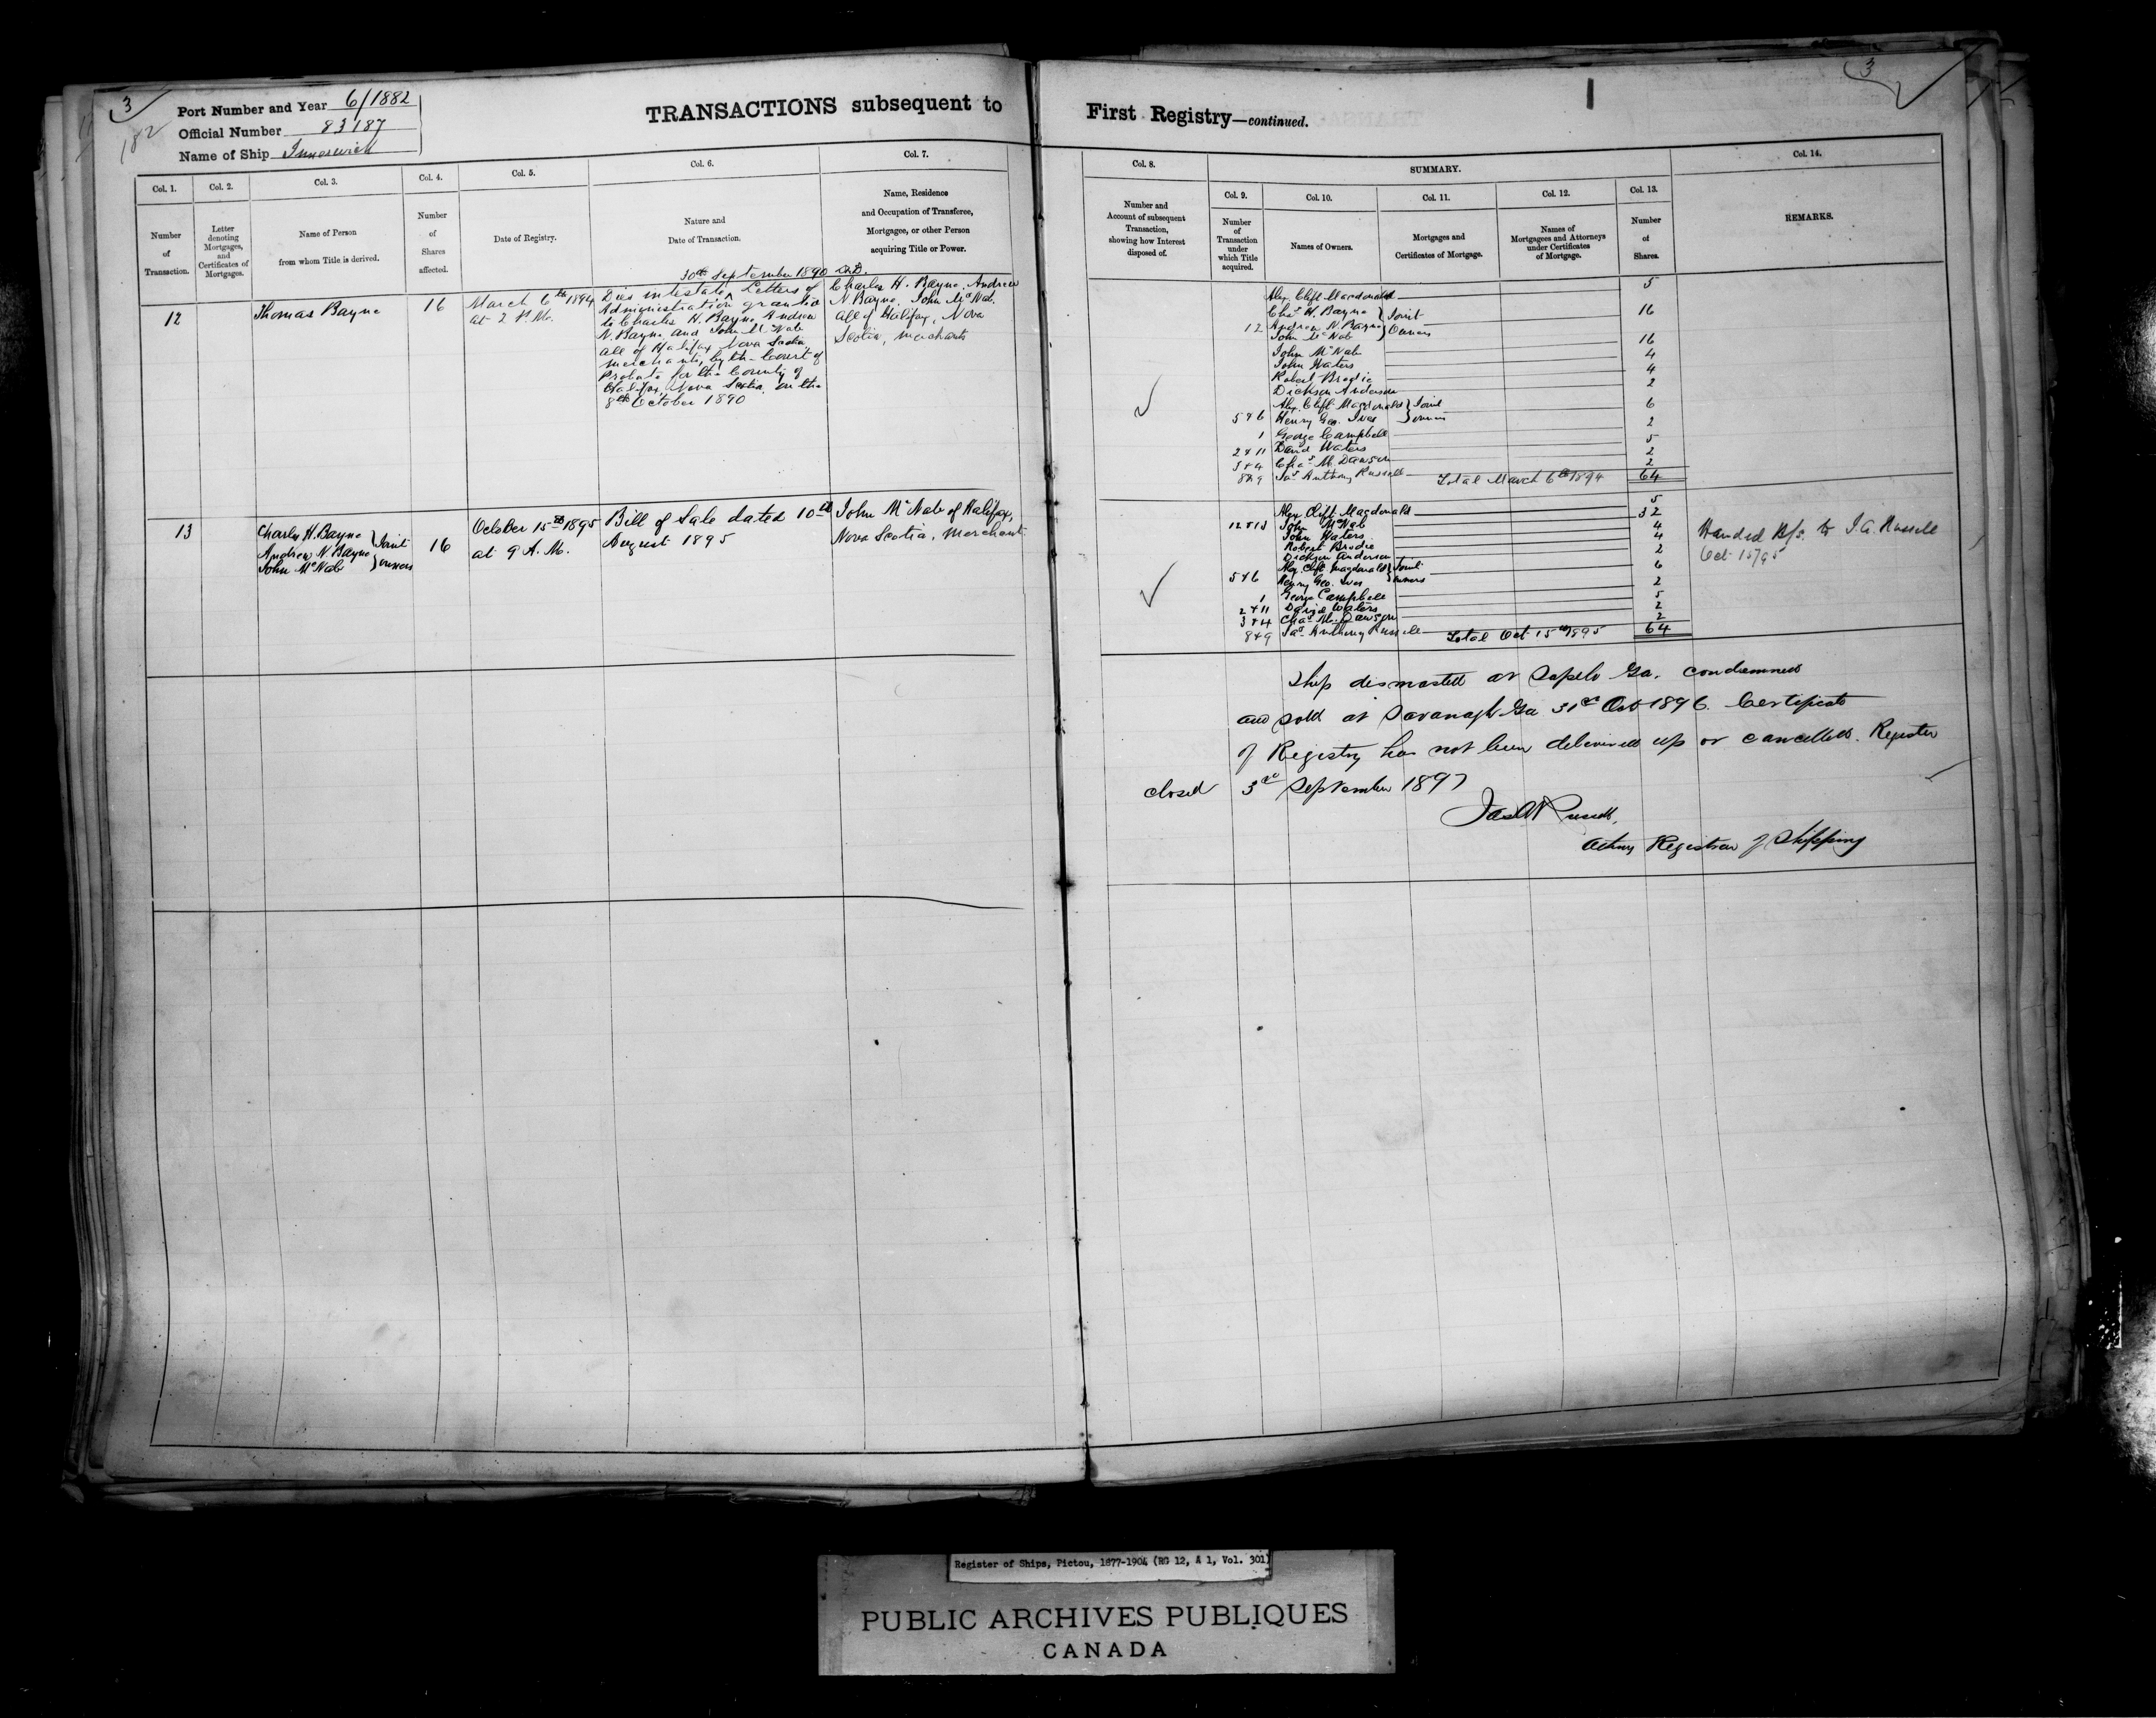 3
182
Port Number and Year 6/1882
Official Number 83187
Name of Ship Innerwick
TRANSACTIONS subsequent to
Col. 1.
Col. 2.
Col. 3.
Col. 4.
Col. 5.
Col. 6.
Col. 7.
Number
of
Transaction.
Letter
denoting
Mortgages,
and
Certificates of
Mortgages.
Name of Person
from whom Title is derived.
Number
of
Shares
affected.
Date of Registry.
Nature and
Date of Transaction.
Name, Residence
and Occupation of Transferee,
Mortgagee, or other Person
acquiring Title or Power.
12
Thomas Bayne
16
March 6th 1894
at 2 P.M.
30th September 1890 A.D.
Dies intestate, Letters of
Administration granted
to Charles H. Bayne Andrew
N. Bayne and John McNab
all of Halifax Nova Scotia
merchants, by the Court of
Probate for the County of
Halifax Nova Scotia, on the
8th October 1890
Charles H. Bayne, Andrew
N. Bayne, John McNab,
all of Halifax, Nova
Scotia, merchants
13
Charles H. Bayne
Andrew N. Bayne
John McNab
Joint
owners
16
October 15th 1895
at 9 A.M.
Bill of Sale dated 10th
August 1895
John McNab of Halifax,
Nova Scotia, Merchant
3
First Registry—continued.
Col. 8.
SUMMARY.
Col. 14.
Col. 9.
Col. 10.
Col. 11.
Col. 12.
Col. 13.
Number and
Account of subsequent
Transaction,
showing how Interest
disposed of.
Number
of
Transaction
under
which Title
acquired.
Names of Owners.
Mortgages and
Certificates of Mortgage.
Names of
Mortgagees and Attorneys
under Certificates
of Mortgage.
Number
of
Shares.
REMARKS.
Alex. Clift Macdonald 5
Chas H. Bayne
12 Andrew N. Bayne
John McNab
Joint
Owners
16
John McNab 16
John Waters 4
Robert Brodie 4
Dickson Anderson 2
Alex. Clift Macdonald
5 & 6 Henry Geo. Ives
Joint
owners
6
1 George Campbell 2
2 & 11 David Waters 5
3 & 4 Chas M. Dawson 2
8 & 9 Jas Anthony Russell 2
Total March 6th 1894 64
Alex. Clift Macdonald 5
12 & 13 John McNab 32
John Waters 4
Robert Brodie 4
Dickson Anderson 2
Alex. Clift Macdonald
5 & 6 Henry Geo. Ives
Joint
owners
6
1 George Campbell 2
2 & 11 David Waters 5
3 & 4 Chas M. Dawson 2
8 & 9 Jas Anthony Russell 2
Total Oct 15th 1895 64
Handed B/S. to J. A. Russell
Oct 15/95
Ship dismasted at Sapelo Ga. condemned
and sold at Savanagh Ga 31st Oct 1896. Certificate
of Registry has not been delivered up or cancelled. Register
closed 3rd September 1897
Jas A Russell,
Acting Registrar of Shipping
Register of Ships, Pictou, 1877-1904 (RG 12, A 1, Vol. 301)
PUBLIC ARCHIVES PUBLIQUES
CANADA